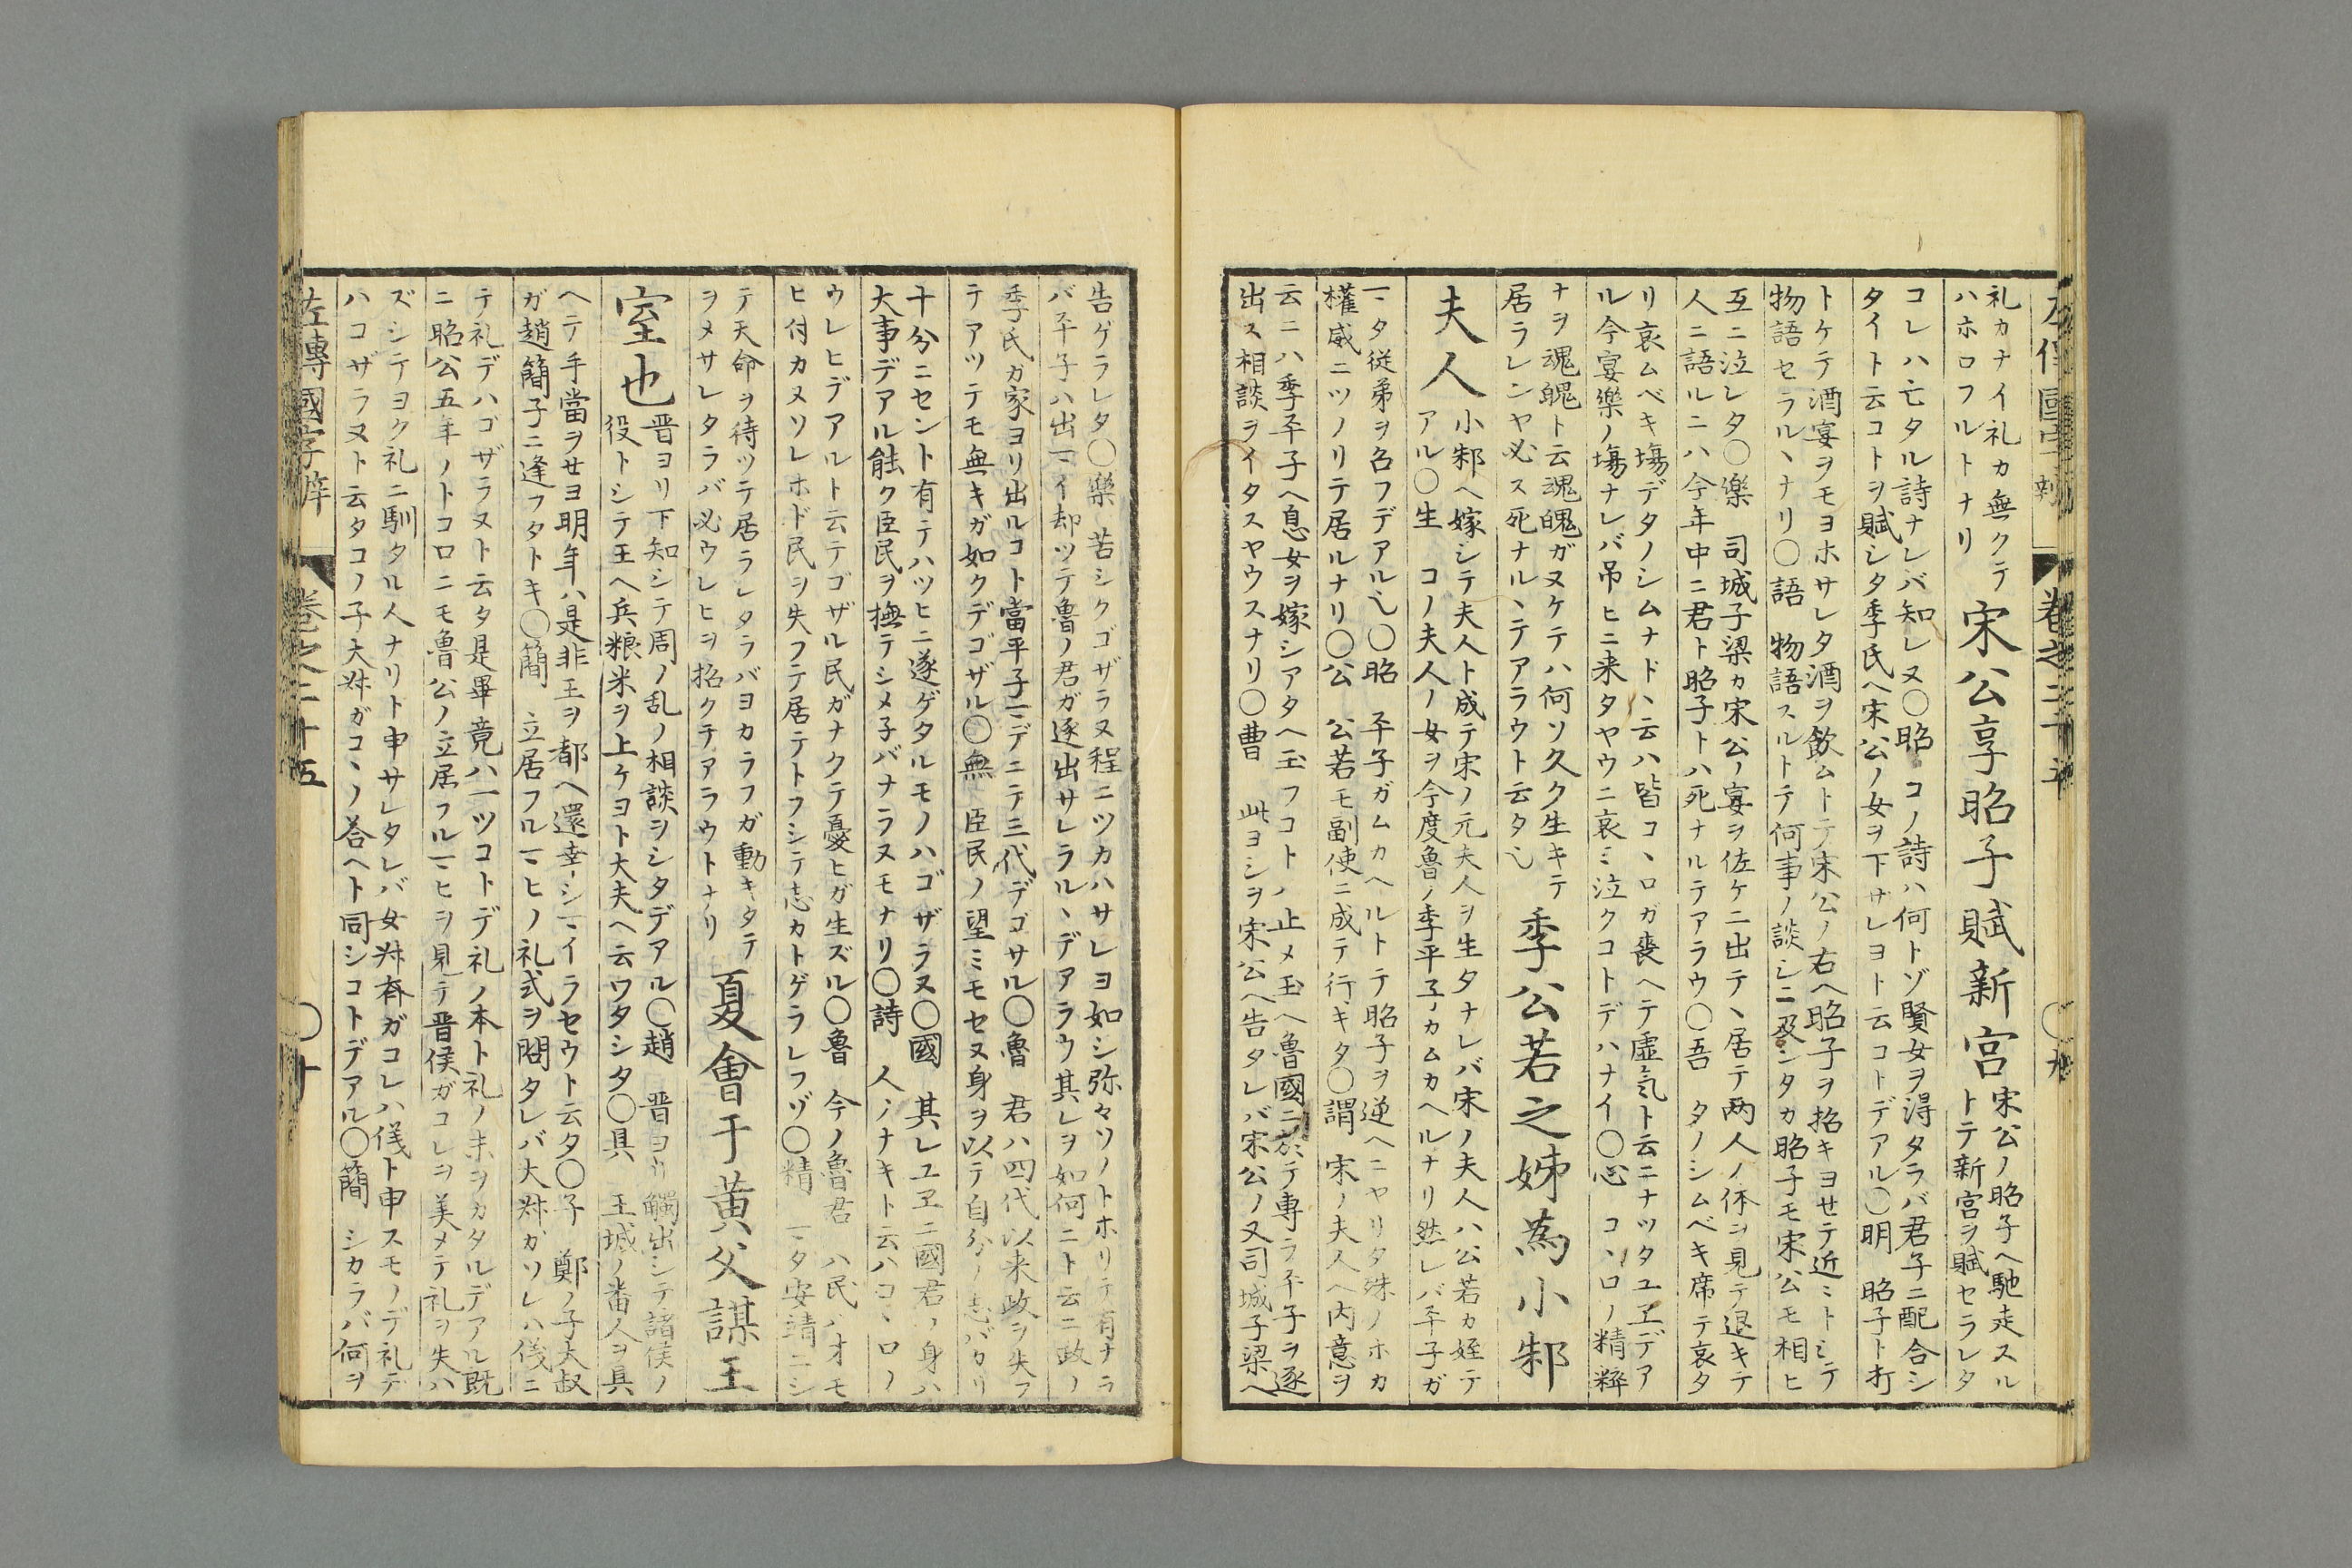 左傳國字辯 卷之二十五 ○九
礼カナイ礼カ無クテ
ハホロフルトナリ
宋公享昭子賦新宮
宋公ノ昭子ヘ馳走スル
トテ新宮ヲ賦セラレタ
コレハ亡タル詩ナレバ知レヌ○昭 コノ詩ハ何トゾ賢女ヲ淂タラバ君子ニ配合シ
タイト云コトヲ賦シタ季氏ヘ宋公ノ女ヲ下サレヨト云コトデアル○明 昭子ト打
トケテ酒宴ヲモヨホサレタ酒ヲ飲ムトテ宋公ノ右ヘ昭子ヲ招キヨセテ近ミトシテ
物語セラル丶ナリ○語 物語スルトテ何事ノ談シニ及ンタカ昭子モ宋公モ相ヒ
互ニ泣レタ○樂 司城子梁カ宋公ノ宴ヲ佐ケニ出テ丶居テ两人ノ体ヲ見テ退キテ
人ニ語ルニハ今年中ニ君ト昭子トハ死ナルテアラウ○吾 タノシムベキ席テ哀タ
リ哀ムベキ塲デタノシムナド丶云ハ皆コ丶ロガ喪ヘテ虚氣ト云ニナツタユヱデア
ル今宴樂ノ塲ナレバ吊ヒニ来タヤウニ哀ミ泣クコトデハナイ○心 コ丶ロノ精粹
ナヲ魂魄ト云魂魄ガヌケテハ何ソ久ク生キテ
居ラレンヤ必ス死ナル丶テアラウト云タ乀
季公若之姊為小邾
夫人
小邾ヘ嫁シテ夫人ト成テ宋ノ元夫人ヲ生タナレバ宋ノ夫人ハ公若カ姪テ
アル○生 コノ夫人ノ女ヲ今度魯ノ季平子カムカヘルナリ然レバ平子ガ
一タ従弟ヲ呂フデアル乀○昭 平子ガムカヘルトテ昭子ヲ逆ヘニヤリタ殊ノホカ
權威ニツノリテ居ルナリ○公 公若モ副使ニ成テ行キタ○謂 宋ノ夫人ヘ内意ヲ
云ニハ季平子ヘ息女ヲ嫁シアタヘ玉フコトハ止メ玉ヘ魯國ニ於テ専ラ平子ヲ逐
出ス相談ヲイタスヤウスナリ○曹 此ヨシヲ宋公ヘ告タレバ宋公ノ又司城子梁ヘ
告ゲラレタ○樂 苦シクゴザラヌ程ニツカハサレヨ如シ弥々ソノトホリテ有ナラ
バ平子ハ出マイ却ツテ魯ノ君ガ逐出サレラル丶デアラウ其レヲ如何ニト云ニ政ノ
季氏カ家ヨリ出ルコト當平子マデニテ三代デゴサル○魯 君ハ四代以来政ヲ失フ
テアツテモ無キガ如クデゴザル○無 臣民ノ望ミモセヌ身ヲ以テ自分ノ志バカリ
十分ニセント有テハツヒニ遂ゲタルモノハゴザラヌ○國 其レユヱニ國君ノ身ハ
大事デアル能ク臣民ヲ撫テシメ子バナラヌモナリ○詩 人ノナキト云ハコ丶ロノ
ウレヒデアルト云テゴザル民ガナクテ憂ヒガ生ズル○魯 今ノ魯君 ハ民ハオモ
ヒ付カヌソレホド民ヲ失フテ居テトフシテ志カトゲラレフゾ○精 一タ安靖ニシ
テ天命ヲ待ツテ居ラレタラバヨカラフガ動キタテ
ヲメサレタラバ必ウレヒヲ招クテアラウトナリ
夏會于黄父謀王
室也
晋ヨリ下知シテ周ノ乱ノ相談ヲシタデアル○趙 晋ヨリ觸出シテ諸侯ノ
役トシテ王ヘ兵粮米ヲ上ケヨト大夫ヘ云ワタシタ○具 王城ノ番人ヲ具
ヘテ手當ヲせヨ明年ハ是非王ヲ都ヘ還幸シマイラセウト云タ○子 鄭ノ子太叔
ガ趙簡子ニ逢フタトキ○簡 立居フルマヒノ礼式ヲ問タレバ大叔ガソレハ儀ニ
テ礼デハゴザラヌト云タ是畢竟ハ一ツコトデ礼ノ本ト礼ノ末ヲカタルデアル既
ニ昭公五年ノトコロニモ魯公ノ立居フルマヒヲ見テ晋侯ガコレヲ美メテ礼ヲ失ハ
ズシテヨク礼ニ馴タル人ナリト申サレタレバ女叔斉ガコレハ儀ト申スモノデ礼デ
ハコザラヌト云タコノ子大叔ガコ丶ノ答ヘト同シコトデアル○簡 シカラバ何ヲ
左傳國字辯 卷之二十五 ○十